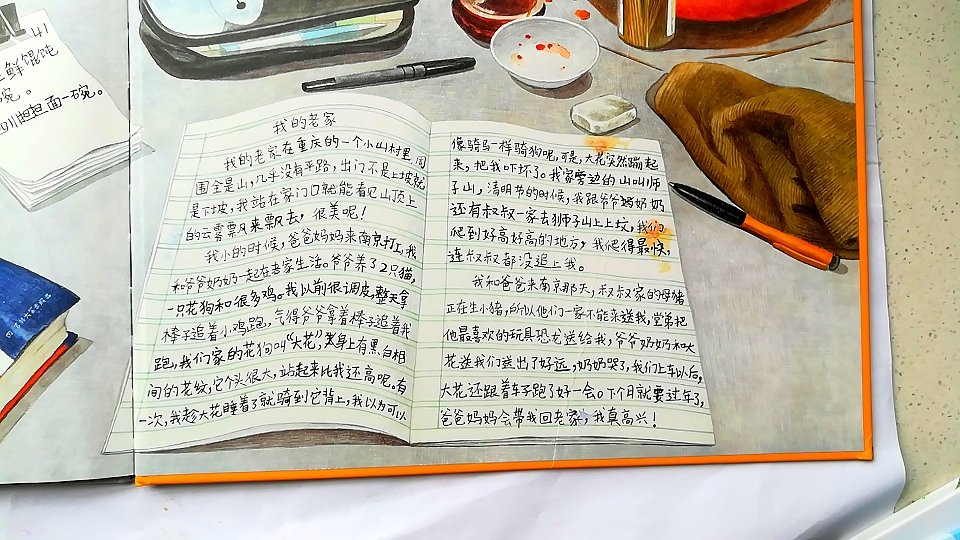 鲜馄饨
碗。
川担担面一碗。
我的老家
我的老家在重庆的一个小山村里,周
围全是山,几乎没有平路,出门不是上坡就
是下坡,我站在家门口就能看见山顶上
的云雾飘来飘去,很美呢!
我小的时候,爸爸妈妈来南京打工,我
和爷爷奶奶一起在老家生活。爷爷养了2只猫,
一只花狗和很多鸡。我以前很调皮,整天拿
棒子追着小鸡跑,气得爷爷拿着棒子追着我
跑,我们家的花狗叫“大花”,身上有黑白相
间的花纹,它个头很大,站起来比我还高呢。有
一次,我趁大花睡着了就骑到它背上,我以为可以
像骑马一样骑狗呢,可是,大花突然蹦起
来,把我吓坏了。我家旁边的山叫狮
子山,清明节的时候,我跟爷爷奶奶
还有叔叔一家去狮子山上上坟,我们
爬到好高好高的地方,我爬得最快,
连叔叔都没追上我。
我和爸爸来南京那天,叔叔家的母猪
正在生小猪,所以他们一家不能来送我,堂弟把
他最喜欢的玩具恐龙送给我,爷爷奶奶和大
花送我们送出了好远,奶奶哭了,我们上车以后,
大花还跟着车子跑了好一会。下个月就要过年了,
爸爸妈妈会带我回老家,我真高兴!